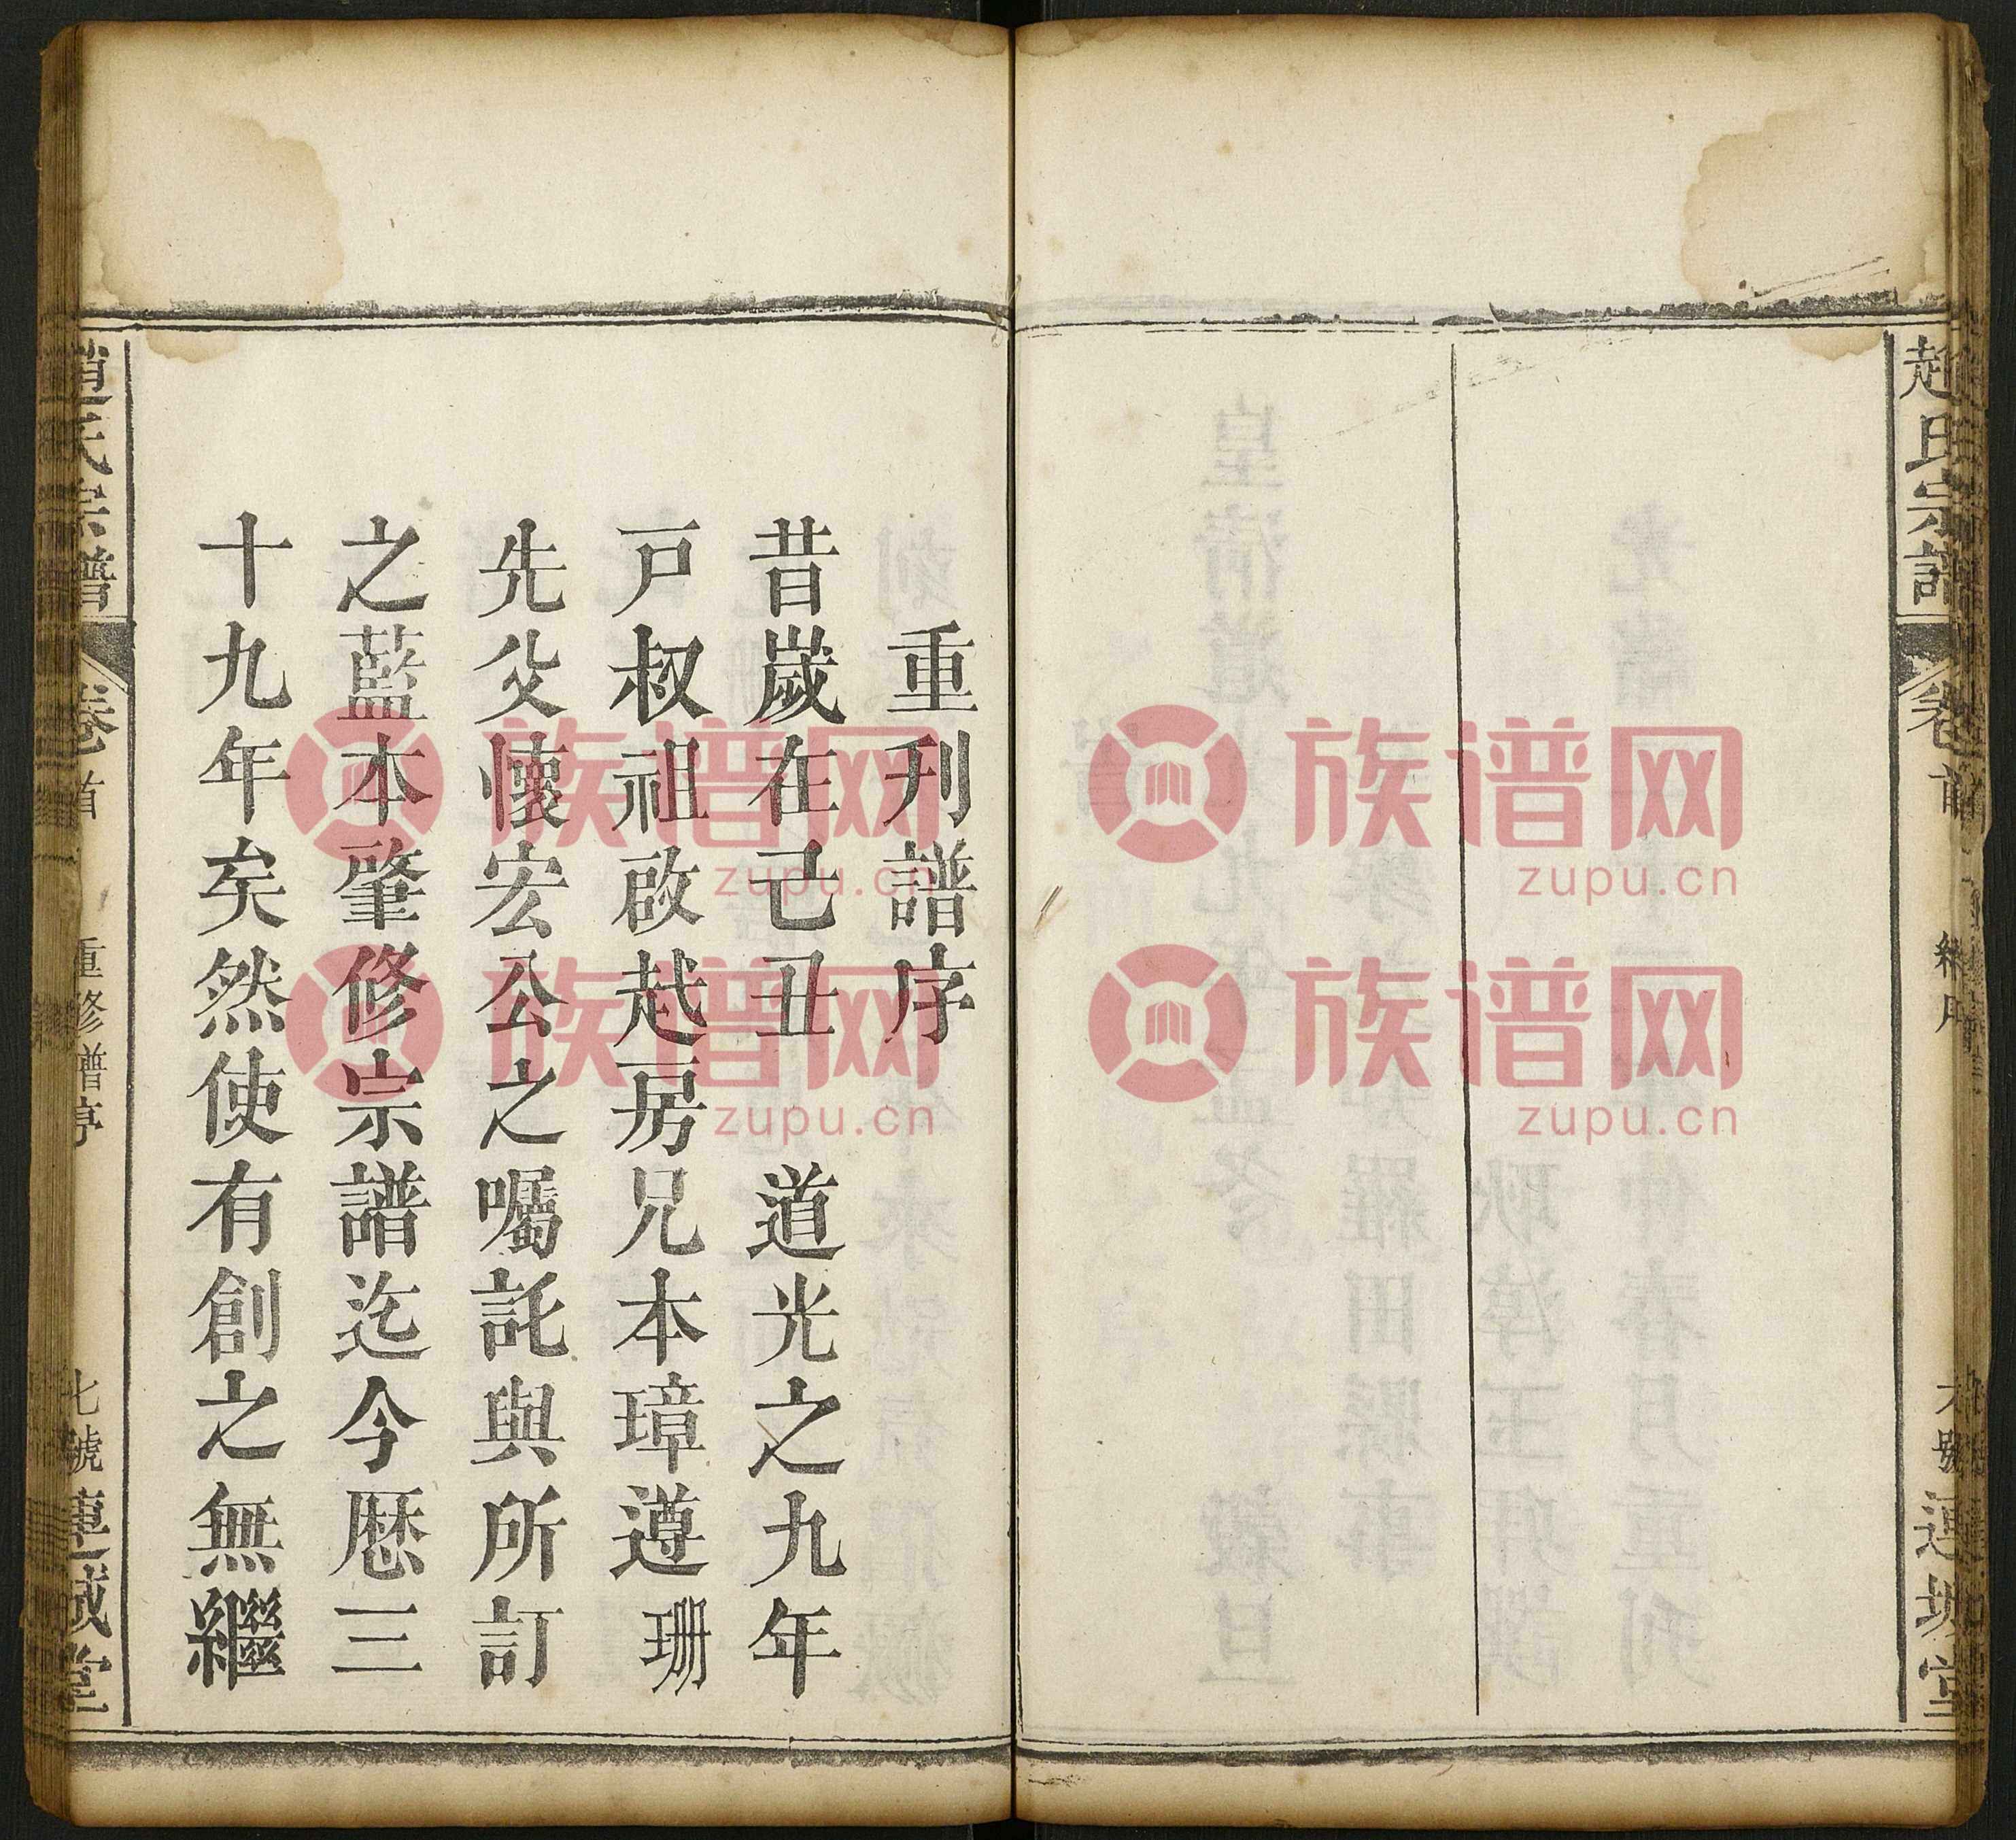 趙氏宗譜
卷首
六號
重刊譜序
昔歲在己丑　道光之九年
戸叔祖啟越房兄本璋遵　珊
先父懷宏公之囑託與所訂
之藍本肇修宗譜迄今歷三
十九年矣然使有創之無繼
趙氏宗譜
卷首
重修譜序
七號
族谱网
zupu.cn
族谱网
zupu.cn
族谱网
zupu.cn
族谱网
zupu.cn